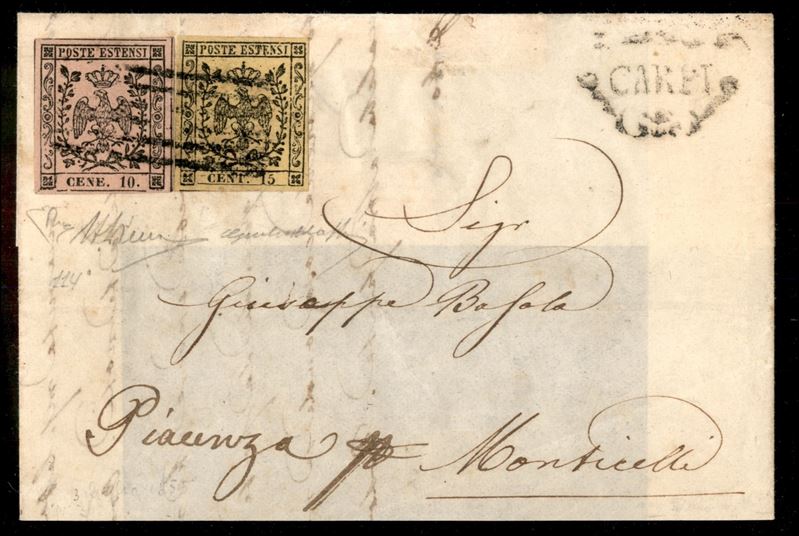 POSTE ESTENSI
CENE. 10.
POSTE ESTENSI
CENT. 15
CARPI
Sigr
Giuseppe Bosola
Piacenza p Monticelli
114